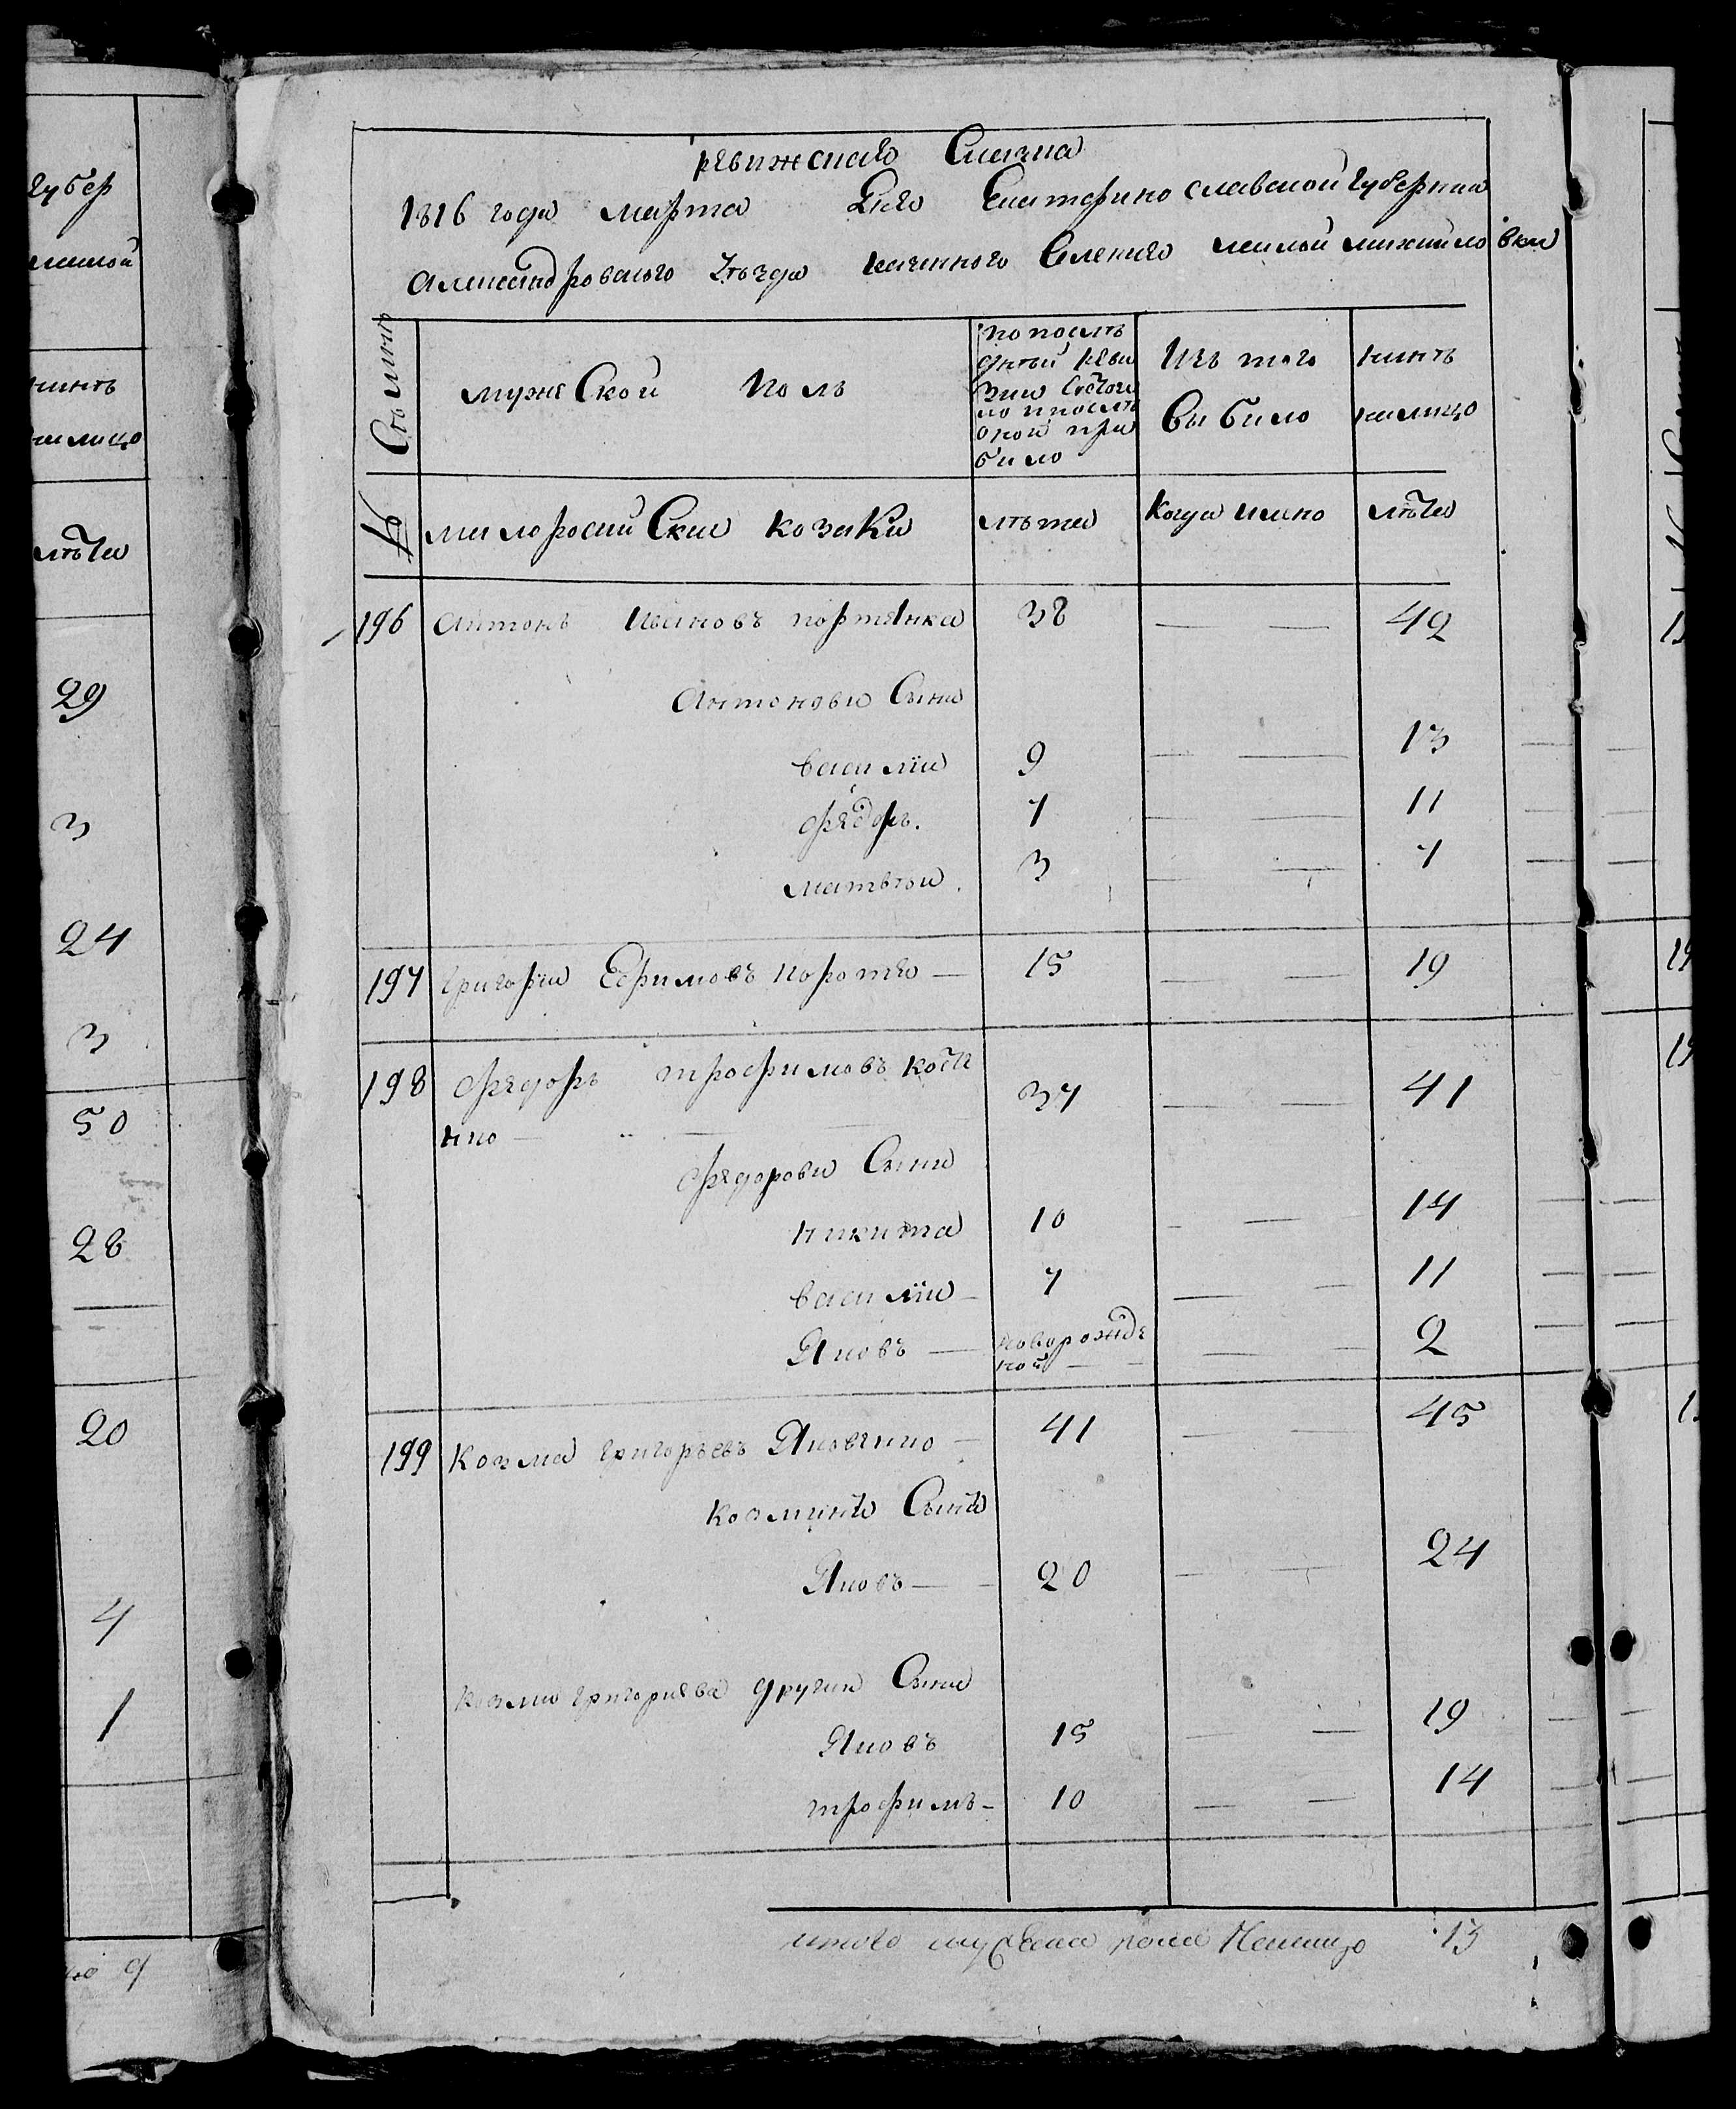 ревижская Сказка
1816 года марта Дня Екатеринославской губернии
Александровского уѣзда казенного Селения малой михайловки
Семьи
мужеской полъ
по послѣ
дней реви
зии состоя
ло и послѣ
оной при
было
Изъ того
выбило
нинѣ
налицо
№
малоросийские козаки
лѣта
когда имено
лѣта
196 антонъ Ивановъ портянка 38 — — 42
Антонови Сыни
василии 9 — — 13
федоръ. 7 — — 11
матвѣи. 3 — — 7
197 григории Ефимовъ коротя — 15 — — 19
198 федоръ трофимовъ кост
нко — 37 — — 41
федорови Сыни
никита 10 — — 14
василии — 7 — — 11
Яковъ — новорожде
ной — — — 2
199 козма григорьевъ Яковенко — 41 — — 45
козминъ Сынъ
Яковъ — 20 — — 24
козми григориева други Сыни
Яковъ 15 — — 19
трофимъ — 10 — — 14
итого мужеска пола Налицо 13
губер
малой
нинѣ
налицо
лѣта
29
3
24
3
50
28
20
4
1
9